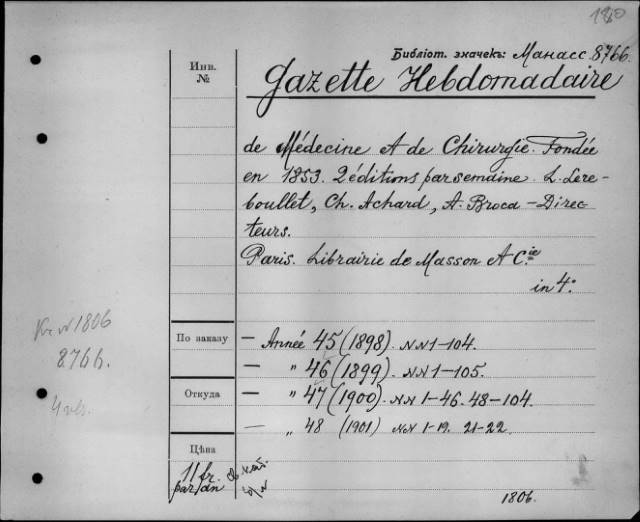 180
Библіот. значекъ: Манасс 8766.
Инв.
№
Gazette Hebdomadaire
de Médecine & de Chirurgie. Fondée
en 1853. 2 éditions par semaine. L. Lere-
boullet, Ch. Achard, A. Broca - Direc-
teurs.
Paris. Librairie de Masson & Cie
in 4º
1806
8766.
По заказу
— Année 45 (1898). NN 1-104.
— " 46 (1899). NN 1-105.
Откуда
— " 47 (1900). NN 1-46. 48-104.
— " 48 (1901) NN 1-19. 21-22.
Цѣна
11 fr.
par an
1806.